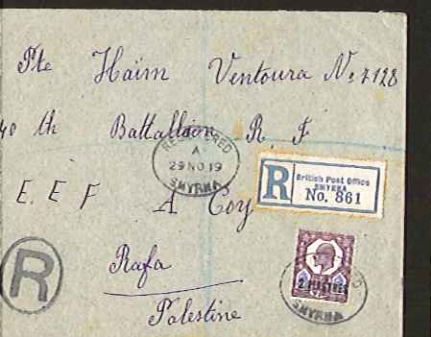 Pte Haim Ventoura No 7128
40 th Battallion R. F
REGISTERED
A
29 NO 19
SMYRNA
R
British Post Office
SMYRNA
No. 861
E. E F A Coy
R
Rafa
2 PIASTRES
SMYRNA
Palestine